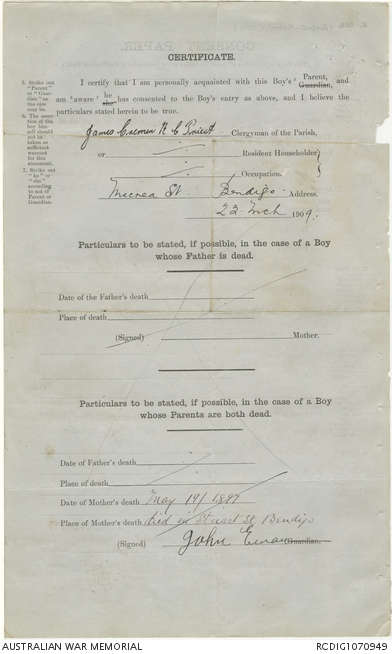 CERTIFICATE.
5. Strike out "Parent" or "Guardian" as the case may be.
6. The assertion of the boy himself should not be taken as sufficient warrant for this statement.
7. Strike out "he" or "she" according to sex of Parent or Guardian.
I certify that I am personally acquainted with this Boy's Parent, Guardian, and
am aware he she has consented to the Boy's entry as above, and I believe the
particulars stated herein to be true.
James Cremin R C Priest Clergyman of the Parish,
or Resident Householder
Occupation.
McCrea St Bendigo Address.
22 Mch 1909.
Particulars to be stated, if possible, in the case of a Boy
whose Father is dead.
Date of the Father's death
Place of death
(Signed) Mother.
Particulars to be stated, if possible, in the case of a Boy
whose Parents are both dead.
Date of Father's death
Place of death
Date of Mother's death May 19/1897
Place of Mother's death Died in St Bendigo
(Signed) John Guardian.
AUSTRALIAN WAR MEMORIAL
RCDIG1070949